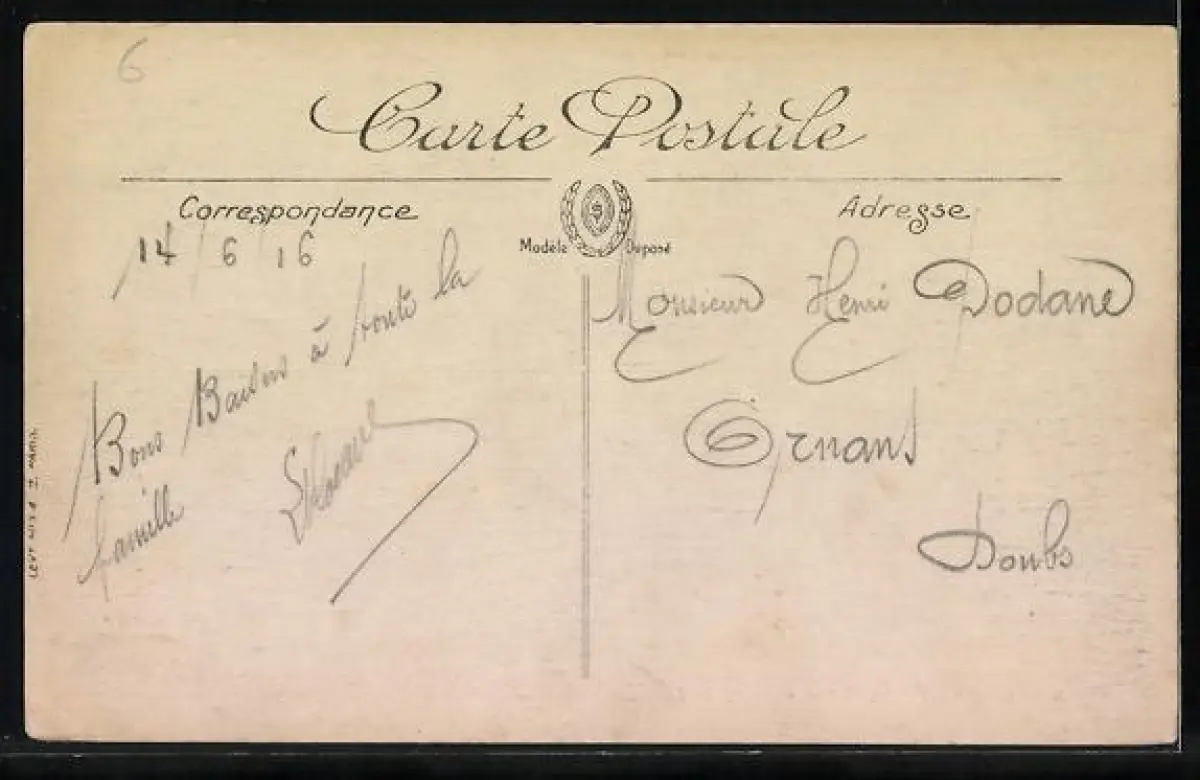 6
Carte Postale
Correspondance
Modèle Déposé
Adresse
14/6/16
Bons Baisers à toute la
famille
Monsieur Henri Dodane
Ornans
Doubs